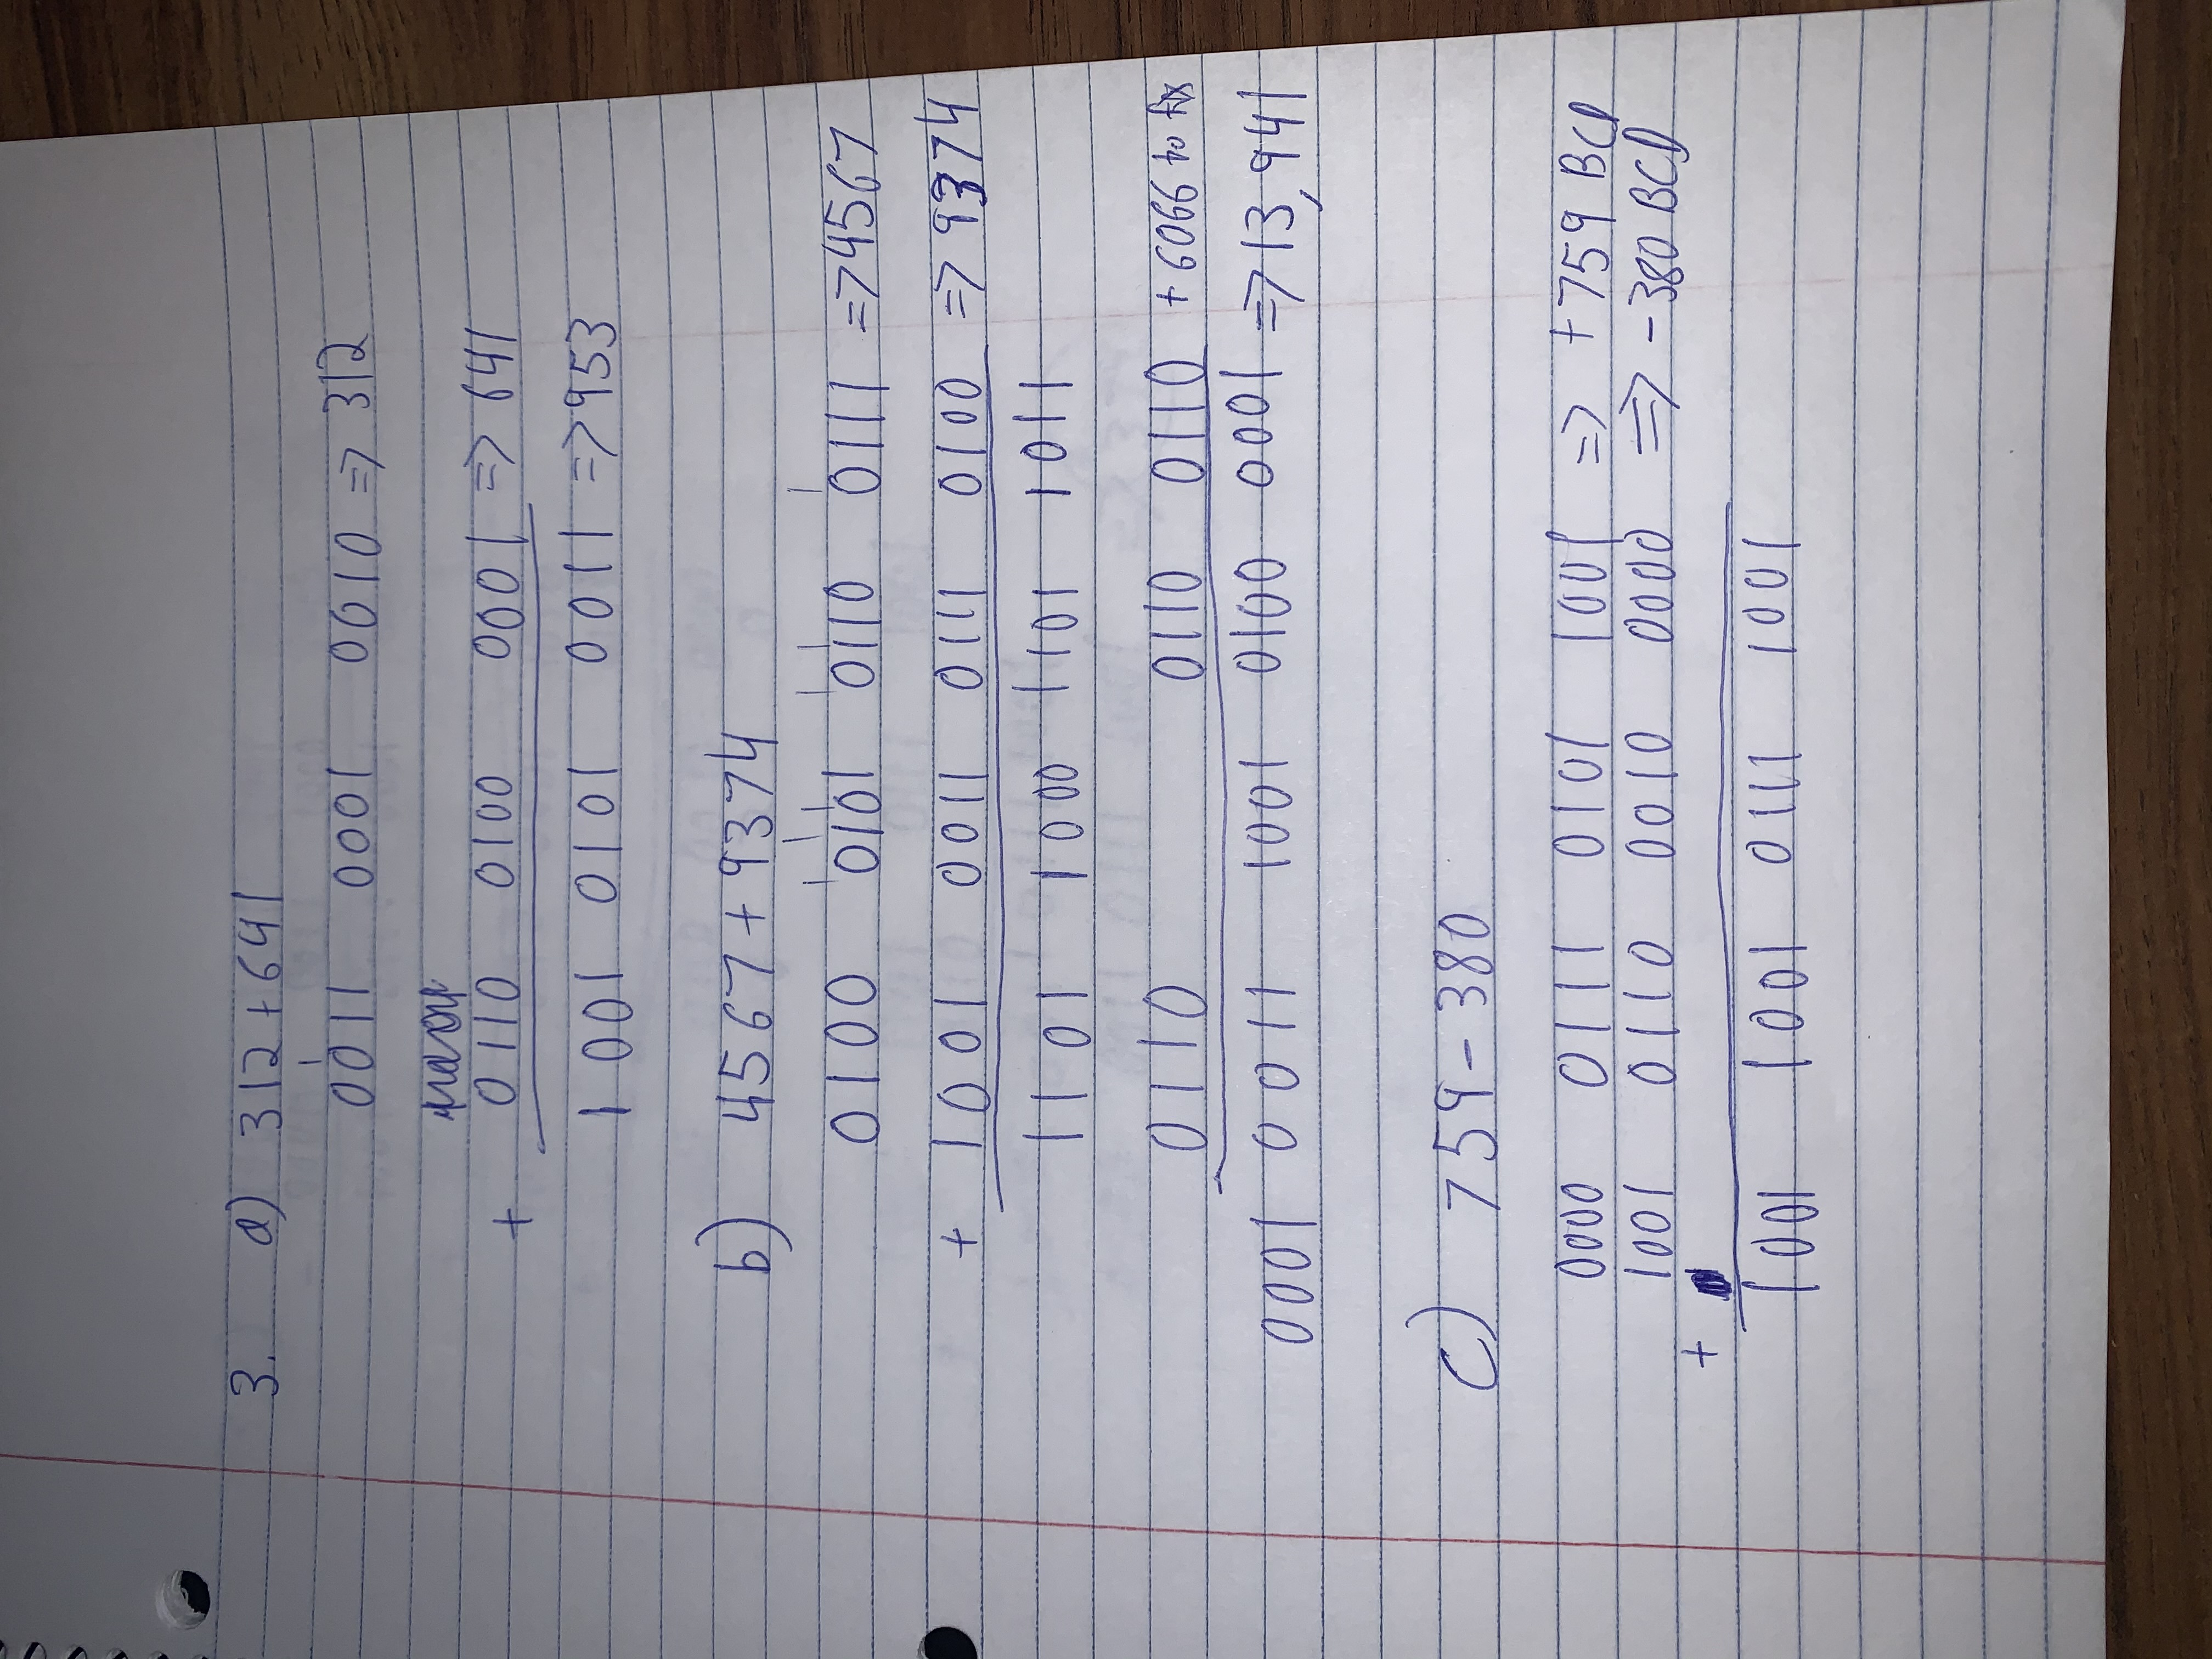 3. a) 312+641
1
0011 0001 0010 => 312
+ 0110 0100 0001 => 641
1001 0101 0011 => 953
b) 4567+9374
1 1 1 1 1 1
0100 0101 0110 0111 => 4567
+ 1001 0011 0111 0100 => 9374
1101 1000 1101 1011
0110 0110 0110 + 6066 to fix
0001 0011 1001 0100 0001 => 13,941
c) 759-380
0000 0111 0101 1001 => +759 BCD
1001 0110 0010 0000 => -380 BCD
+
1001 1001 0111 1001